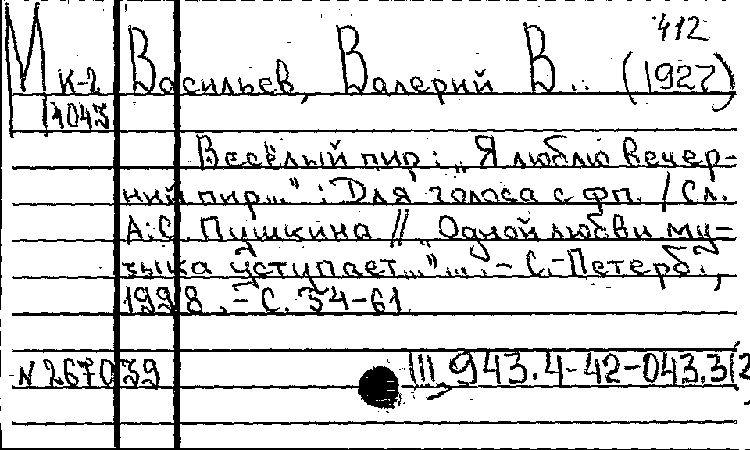 412
М к-2 Васильев, Валерий В.. (1927)
1043
Весёлый пир: „Я люблю вечер-
ний пир..." : Для голоса с фп. / Сл.
А.С. Пушкина // „Одной любви му-
зыка уступает..."... .- С.-Петерб.,
1998 .- С. 54-61
N 267039 III, 943.4-42-043.3(2